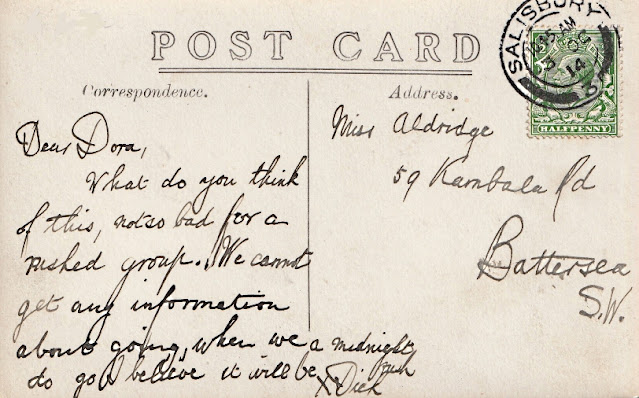 POST CARD
Correspondence.
Address.
SALISBURY
AM
OC
14
HALFPENNY
Dear Dora,
What do you think
of this, not so bad for a
rushed group. We cannot
get any information
about going, when we
do go I believe it will be
a midnight
rush
XX Dick
Miss Aldridge
59 Kambala Rd
Battersea
S.W.